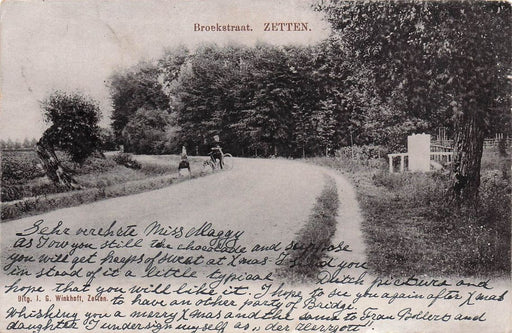 Broekstraat. ZETTEN.
Sehr verehrte Miss Maggy
As I owe you still the chocolade and suppose
you will get heeps of sweat at Xmas I send you
in stead of it a little typical Dutch picture and
hope that you will like it. I hope to see you again after Xmas
to have an other party of Bridge
Whishing you a merry Xmas and the same to Frau and
daughter I undersign myself as „der Herrgott"
Uitg. J. G. Winkhoff, Zetten.